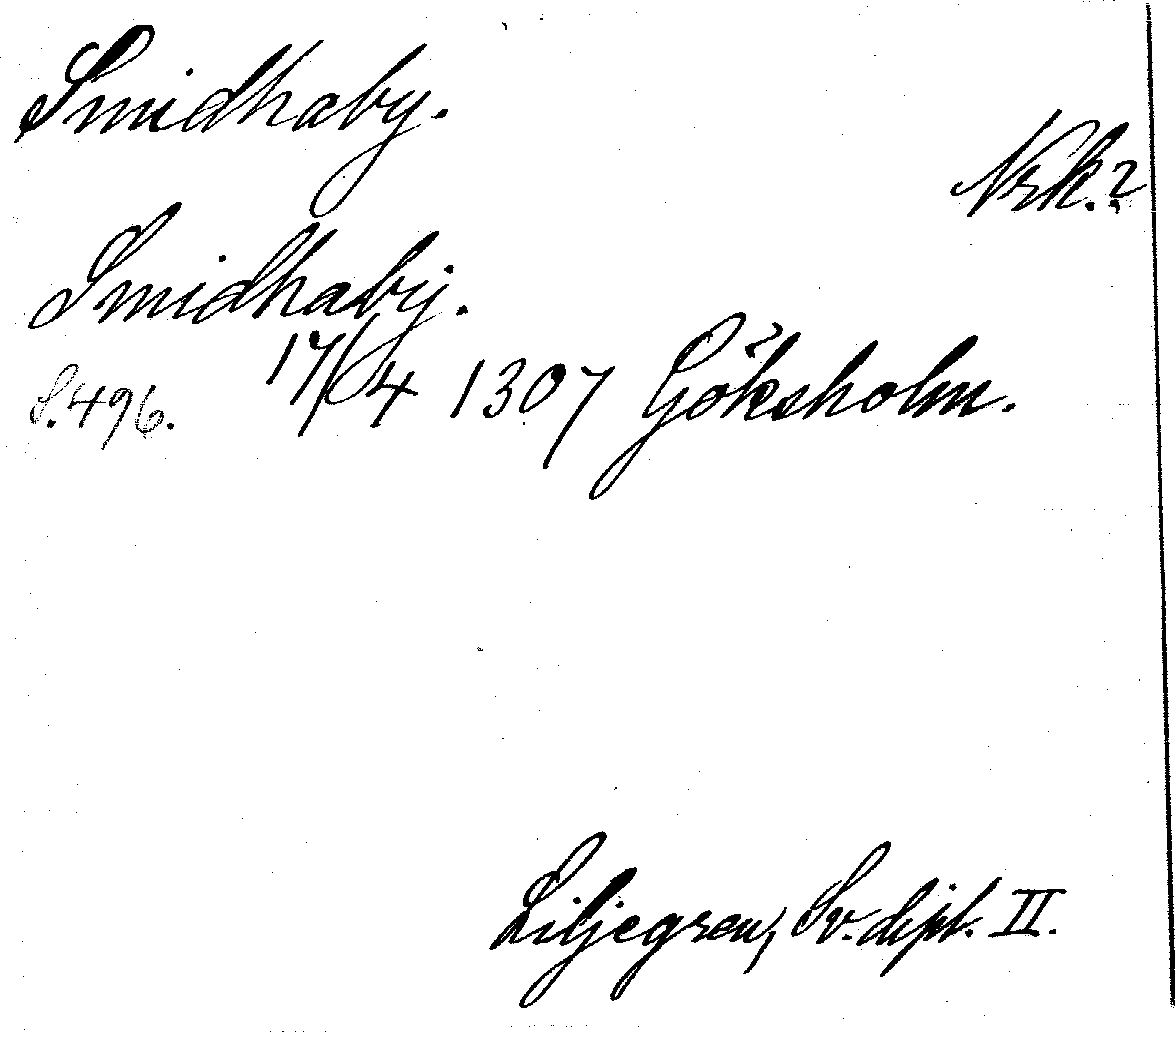 Smidhaby.
Nrk.?
Smidhabÿ.
S. 496. 17/4 1307 Göksholm.
Liljegren, Sv. dipl. II.